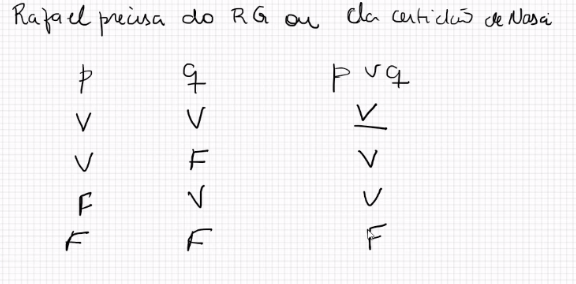 Rafael precisa do RG ou da certidão de Nasci
p q p v q
V V V
V F V
F V V
F F F